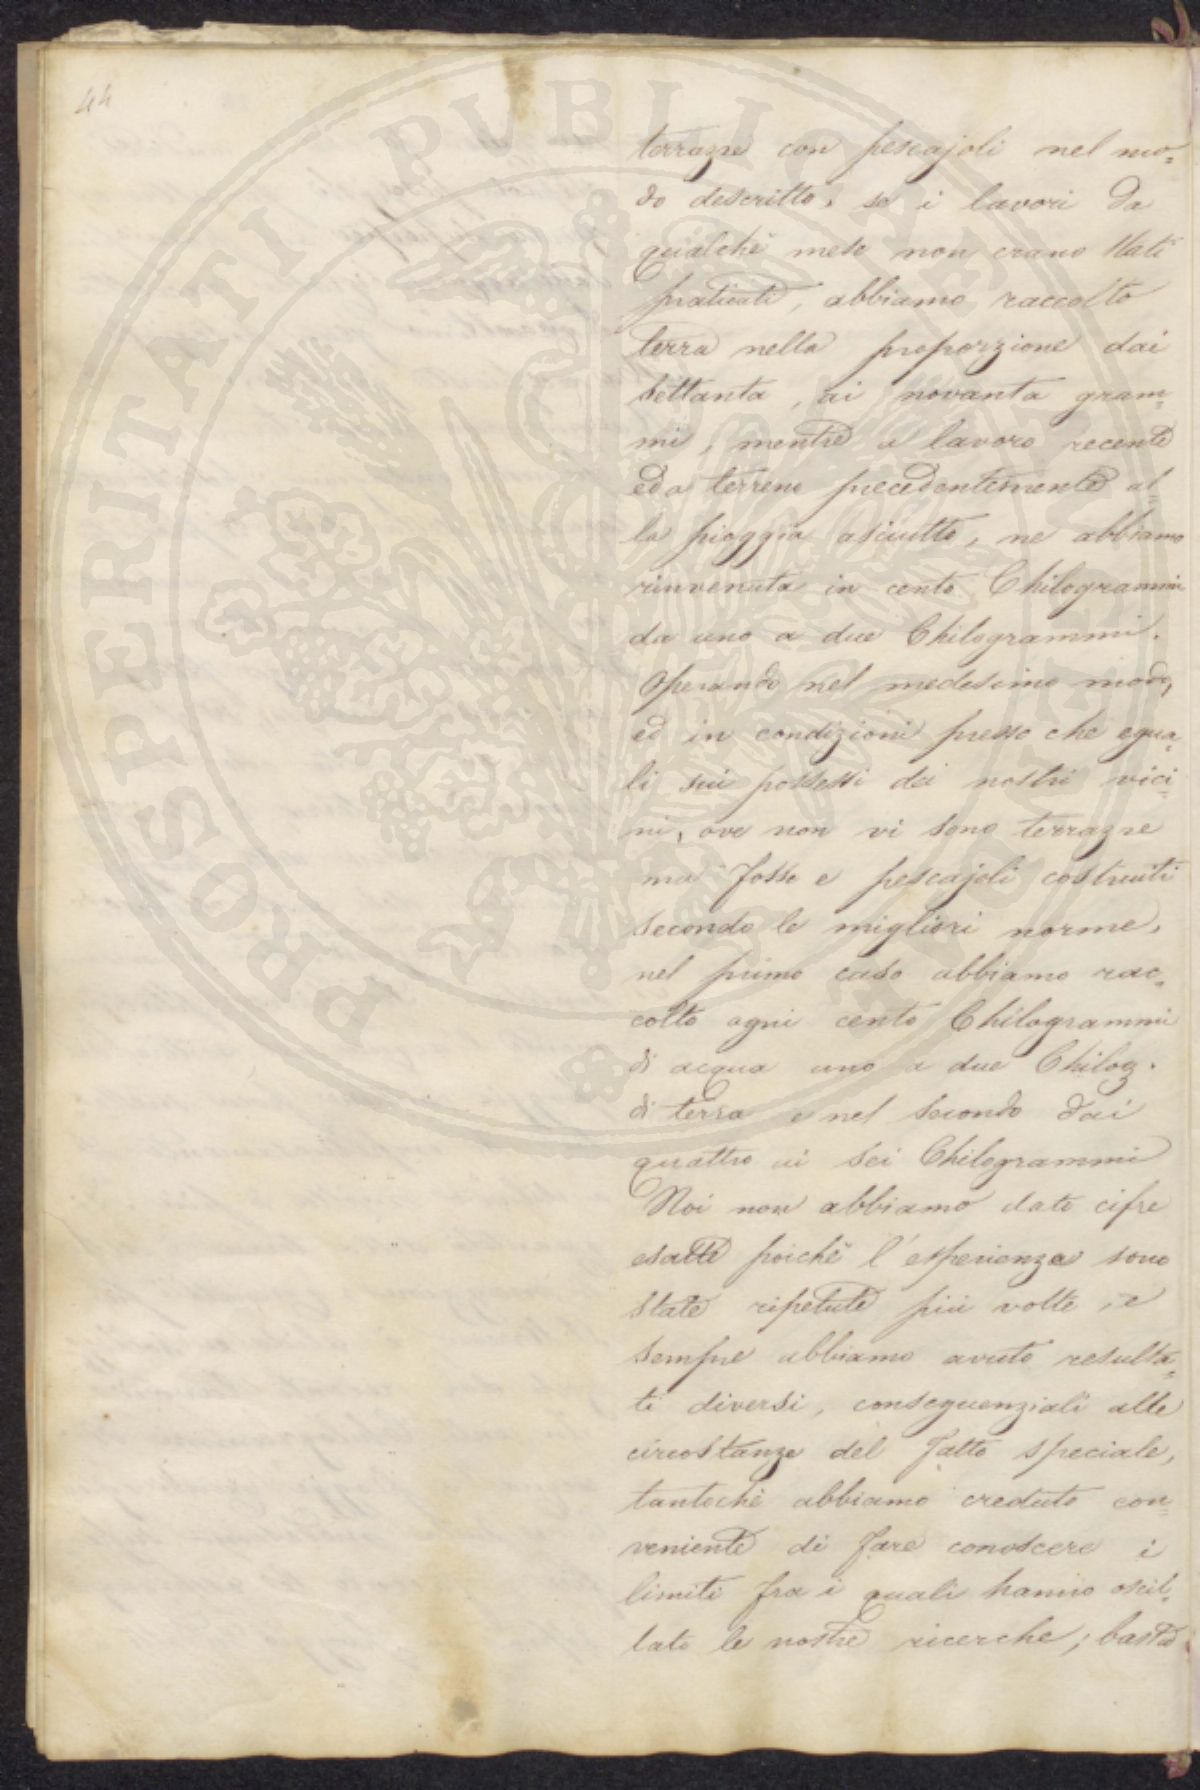 44
terrazze con pescajoli nel mo=
do descritto, se i lavori da
qualche mese non erano stati
praticati, abbiamo raccolto
terra nella proporzione dai
settanta, ai novanta gram=
mi, mentre a lavoro recente
ed a terreno precedentemente al=
la pioggia asciutto, ne abbiamo
rinvenuta in cento Chilogrammi
da uno a due Chilogrammi.
Operando nel medesimo modo,
ed in condizioni presso che egua=
li sui possessi dei nostri vici=
ni, ove non vi sono terrazze
ma fosse e pescajoli costruiti
secondo le migliori norme,
nel primo caso abbiamo rac=
colto ogni cento Chilogrammi
di acqua uno a due Chilog.
di terra e nel secondo dai
quattro ai sei Chilogrammi
Noi non abbiamo dato cifre
esatte poichè l'esperienze sono
state ripetute più volte, e
sempre abbiamo avuto resulta=
ti diversi, conseguenziali alle
circostanze del fatto speciale,
tantochè abbiamo creduto con=
veniente di fare conoscere i
limiti fra i quali hanno oscil=
lato le nostre ricerche; basta
PROSPERITATI PUBLICAE